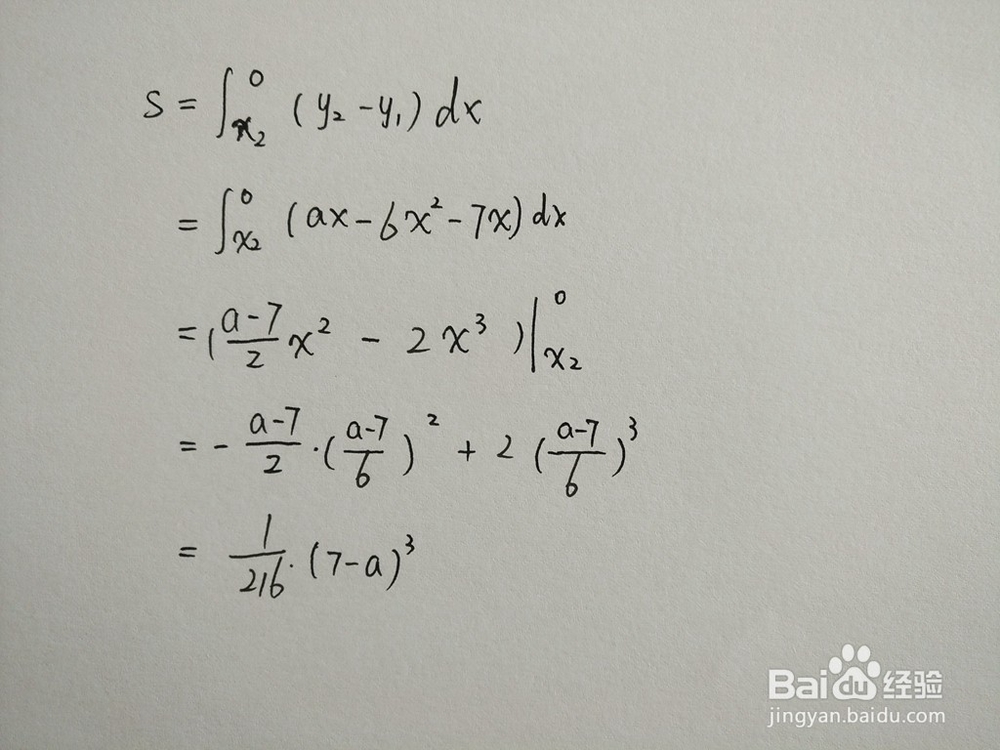 S = ∫_{x₂}^{0} (y₂ - y₁) dx
= ∫_{x₂}^{0} (ax - 6x² - 7x) dx
= ( \frac{a-7}{2} x² - 2x³ ) |_{x₂}^{0}
= - \frac{a-7}{2} · ( \frac{a-7}{6} )² + 2 ( \frac{a-7}{6} )³
= \frac{1}{216} · (7-a)³
Baidu经验
jingyan.baidu.com